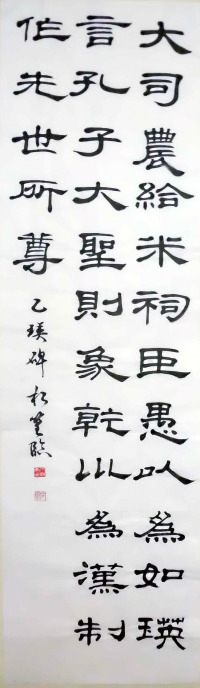 大司農給米祠臣愚以為如瑛
言孔子大聖則象乾坤為漢制
作先世所尊
乙瑛碑 臨